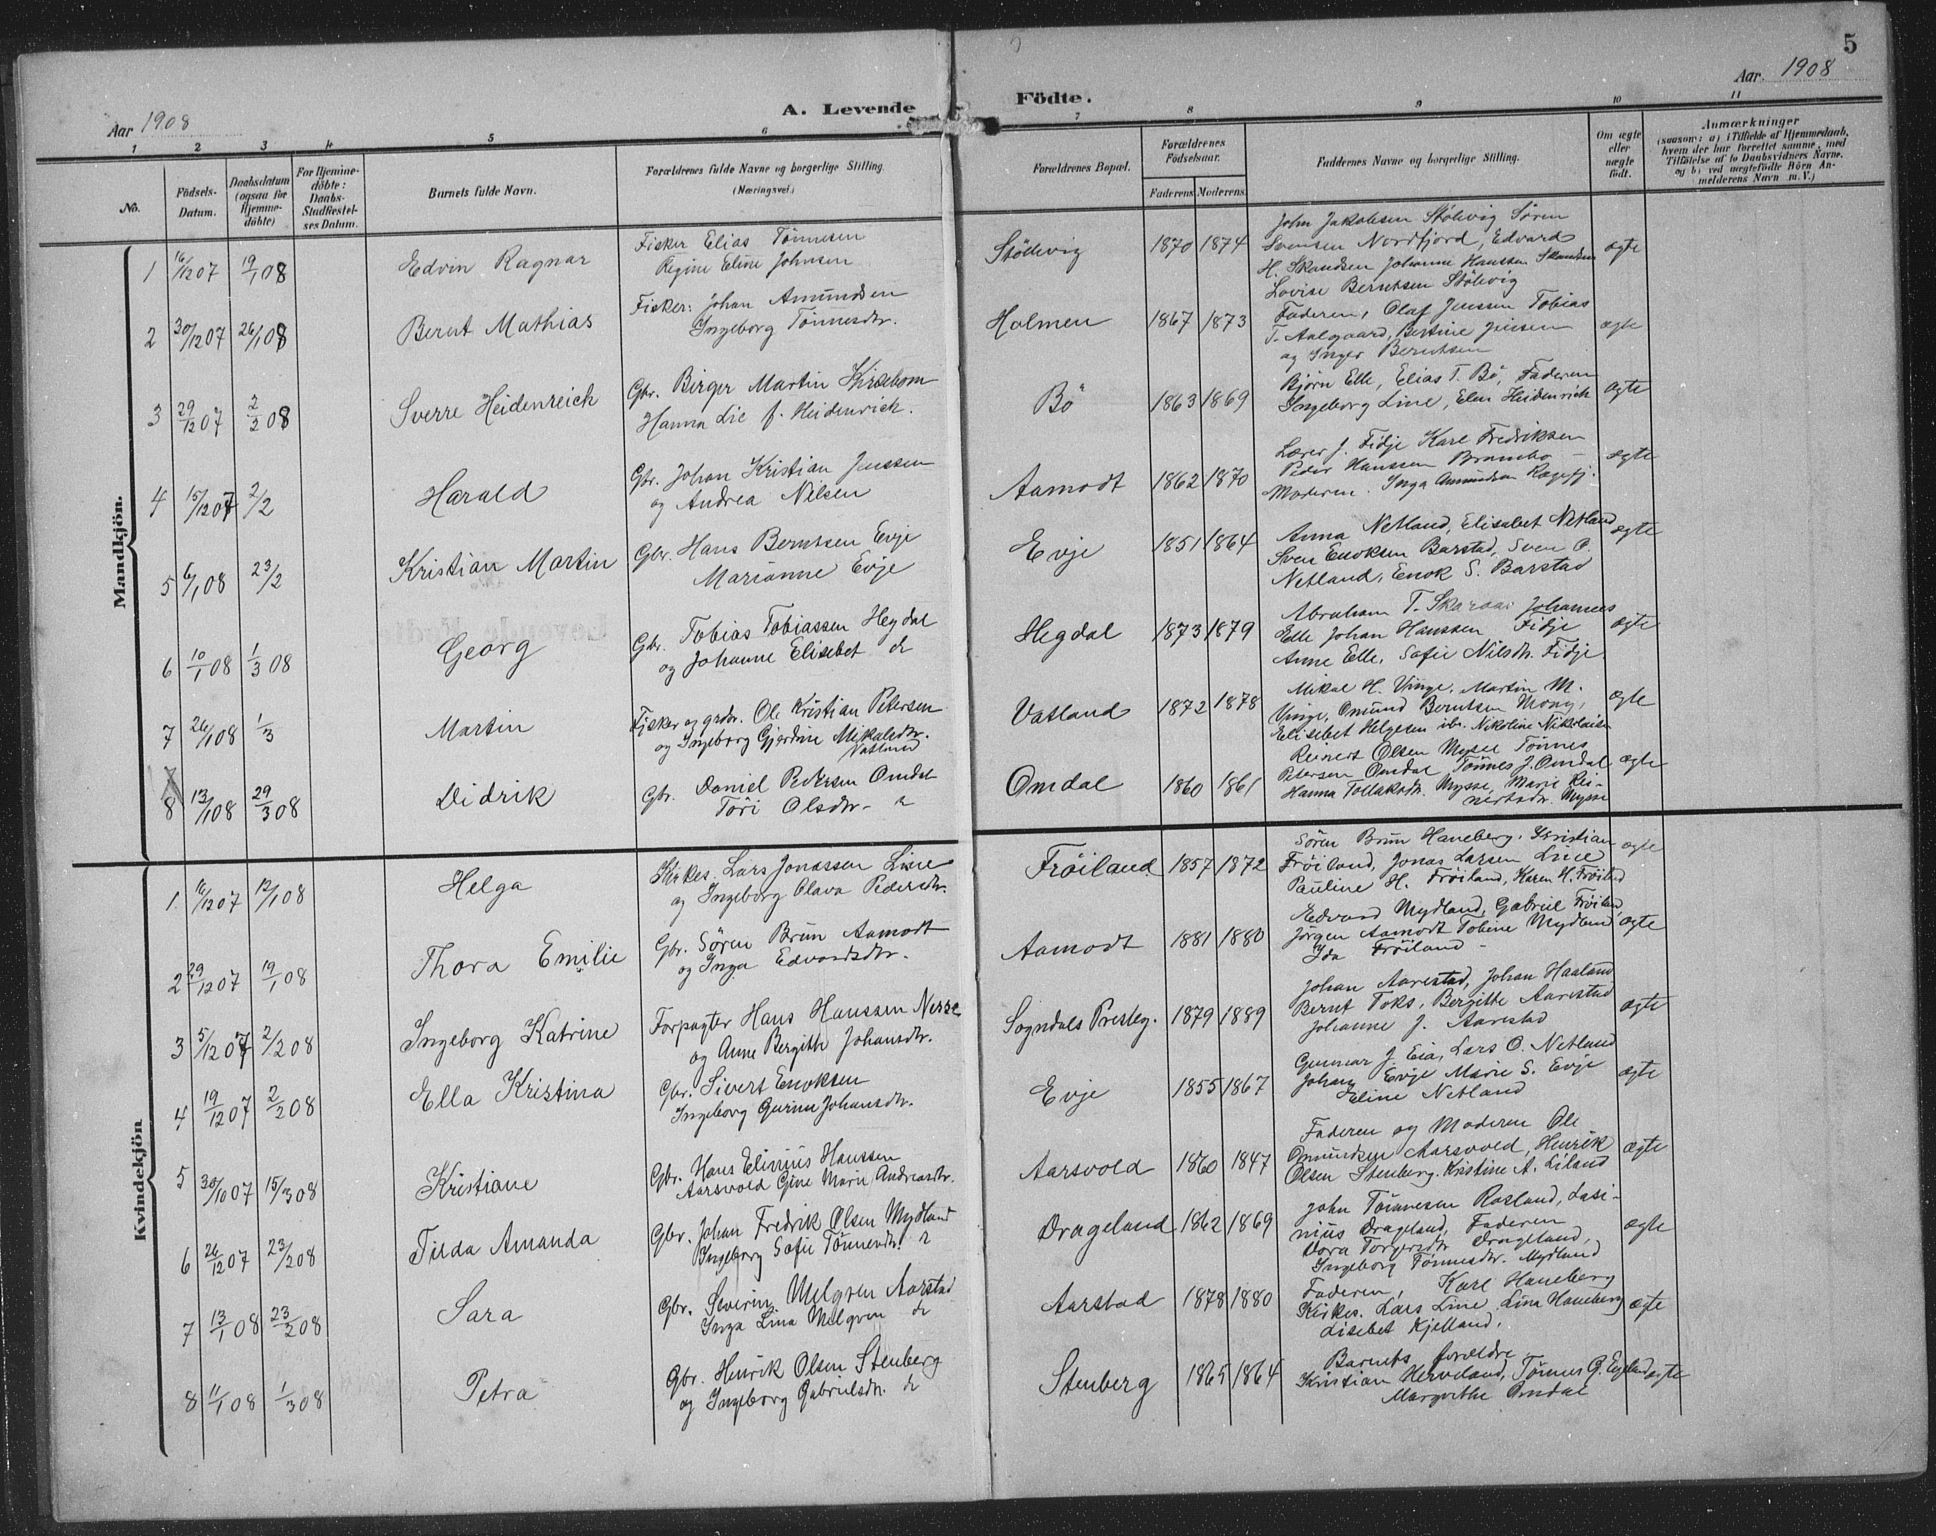 5
Aar 1908
A. Levende Födte.
Aar. 1908
1 2 3 4 5 6 7 8 9 10 11
No.
Födsels-Datum.
Daabsdatum (ogsaa för Hjemme-döbte)
For Hjemme-döbte: Daabs-Stadfæstel-ses Datum.
Barnets fulde Navn.
Forældrenes fulde Navne og borgerlige Stilling. (Næringsvei.)
Forældrenes Bopæl.
Forældrenes Födselsaar.
Faderens. Moderens.
Faddernes Navne og borgerlige Stilling.
Om ægte eller uægte födt.
Anmærkninger
(saasom: a) i Tilfælde af Hjemmedaab,
hvem der har forrettet samme, med
Tilföielse af to Daabsvidners Navne.
og b) ved uægtefödte Börn An-
melderens Navn m. V.)
Mandkjön.
1 16/12 07 19/1 08 Edvin Ragnar
Fisker Elias Tönnesen
Regine Eline Johnsen
Stölevig 1870 1874
John Jakobsen Stölevig Sören
Svensen Nordfjord, Edvard
H. Skandsen Johanne Hanssen Skandsen
Lovise Berntsen Stölevig
ægte
2 30/12 07 26/1 08 Bernt Mathias
Fisker: Johan Amundsen
Ingeborg Tönnesdtr.
Holmen 1867 1873
Faderen, Olaf Jenssen Tobias
T. Aalgaard, Bertine Jensen
og Inger Berntsen
ægte
3 29/12 07 2/2 08 Sverre Heidenreich
Gbr. Birger Martin Kirsebom
Hanna Lie f. Heidenrich.
Bö 1863 1869
Björn Elle, Elias T. Bö, Faderen
Ingeborg Line, Elen Heidenrich
ægte
4 15/12 07 2/2 Harald
Gbr. Johan Kristian Jenssen
og Andrea Nilsen
Aamodt 1862 1870
Lærer J. Fidje Karl Fredriksen
Peder Hanssen Brambo -
Moderen. Inga Amundsen Ragefj.
ægte
5 6/1 08 23/2 Kristian Martin
Gbr. Hans Berntsen Evje
Marianne Evje
Evje 1851 1864
Anna Netland, Elisabet Netland
Sven Enoksen Barstad, Sven O.
Netland, Enok S. Barstad
ægte
6 10/1 08 1/3 08 Georg
Gbr. Tobias Tobiassen Hegdal
og Johanne Elisebet do
Hegdal 1873 1879
Abraham T. Skaraas Johannes
Elle Johan Hanssen Fidje
Anne Elle, Sofie Nilsdtr. Fidje.
ægte
7 26/1 08 1/3 Martin
Fisker og grdbr. Ole Kristian Petersen
og Ingeborg Gjerdine Mikalsdtr.
Vatland
Vatland 1872 1878
Mikal H. Vinge. Martin M.
Vinge, Omund Berntsen Mong,
Elisebet Helgesen ibr. Nikoline Nikolaisen
ægte
8 13/1 08 29/3 08 Didrik
Gbr. Daniel Pedersen Omdal
Töri Olsdtr -
Omdal 1860 1861
Reinert Olsen Mysse Tönnes
Petersen Omdal Tönnes J. Omdal
Hanna Tollaksdtr. Mysse, Marie Rei-
nertsdtr. Mysse
ægte
Kvindekjön
1 16/12 07 12/1 08 Helga
Kirkes. Lars Jonassen Line
og Ingeborg Olava Pedersdtr.
Fröiland 1857 1872
Sören Brun Haneberg. Kristian
Fröiland, Jonas Larsen Line
Pauline H. Fröiland, Karen H. Fröiland
ægte
2 29/12 07 19/1 08 Thora Emilie
Gbr. Sören Brun Aamodt
og Inga Edvardsdtr.
Aamodt 1881 1880
Edvard Mydland, Gabriel Fröiland,
Jörgen Aamodt Tobine Mydland
Ida Fröiland -
ægte
3 5/12 07 2/2 08 Ingeborg Katrine
Forpagter Hans Hanssen Nesse
og Anne Bergithe Johansdtr.
Sogndals Presteg. 1879 1889
Johan Aarestad, Johan Haaland
Bernt Toks, Bergitte Aarestad
Johanne J. Aarestad
ægte
4 19/12 07 2/2 08 Ella Kristina
Gbr. Sivert Enoksen
Ingeborg Gurine Johansdtr.
Evje 1855 1867
Gunnar J. Eia, Lars O. Netland
Johan Evje Marie S. Evje
Eline Netland
ægte
5 30/10 07 15/3 08 Kristiane
Gbr. Hans Elinius Hanssen
Aarsvold Gine Marie Andreasdtr.
Aarsvold 1860 1847
Faderen og Moderen Ole
Omundsen Aarsvold, Henrik
Olsen Stenberg. Kristine A. Liland
ægte
6 26/12 07 23/2 08 Tilda Amanda
Gbr. Johan Fredrik Olsen Mydland
Ingeborg Sofie Tönnesdtr.
Drageland 1862 1869
John Tönnesen Rosland, Lasi-
nius Drageland, Faderen
Dora Torgersdtr Drageland,
Ingeborg Tönnesdtr. Mydland
ægte
7 13/1 08 23/2 08 Sara
Gbr. Severin Melgven Aarstad
Inga Lina Melgven do
Aarstad 1878 1880
Faderen, Karl Haneberg
Kirkes. Lars Line, Lina Haneberg
Lisebet Kjelland,
ægte
8 11/1 08 1/3 08 Petra
Gbr. Henrik Olsen Stenberg
og Ingeborg Gabrielsdtr. do
Stenberg 1865 1864
Barnets forældre
Kristian Herveland, Tönnes G. Egeland
Margrethe Omdal
ægte